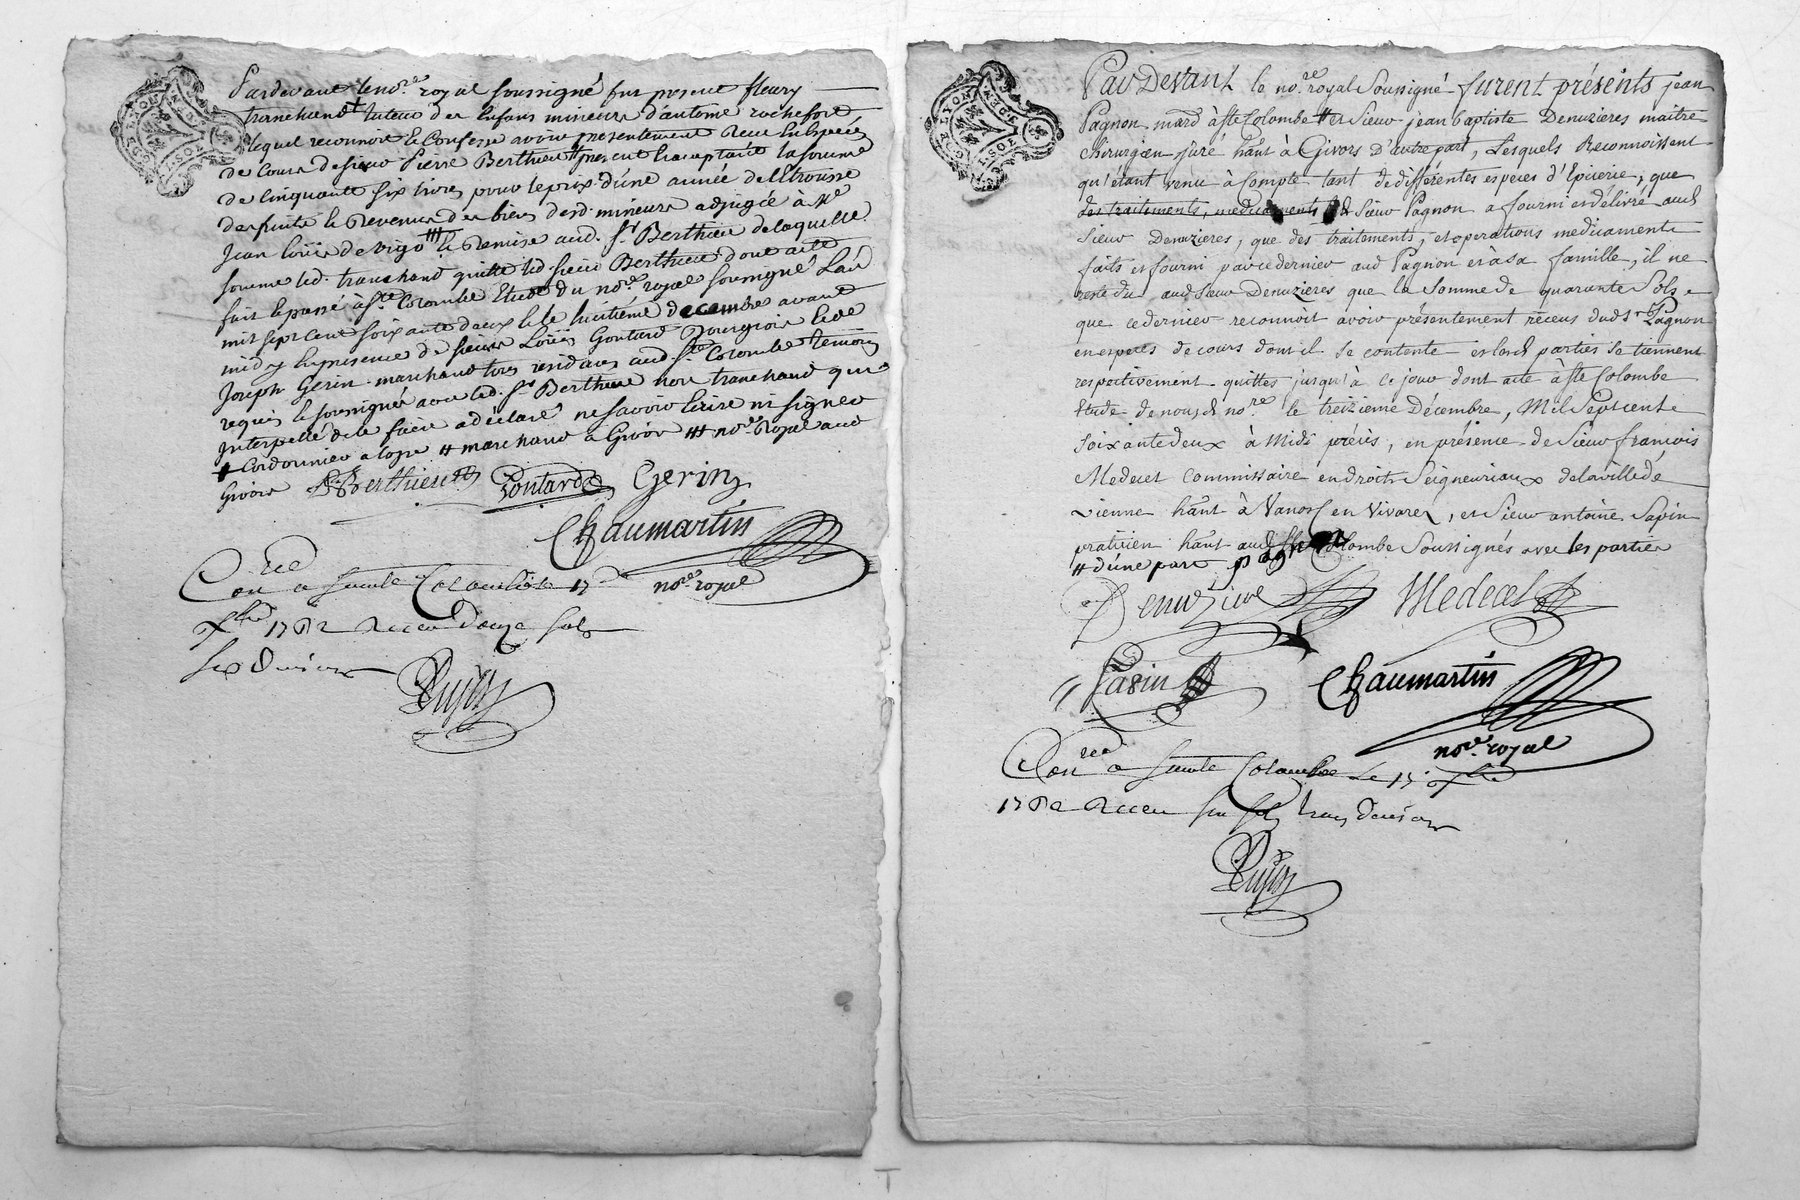 Pardevant le no.re royal soussigné fut present fleury
tranchand # tuteur des Enfans mineurs d'antoine rochefort
lequel reconnoit & Confesse avoir presentement Receu En Espèces
de Cours de sieur Pierre Berthieu # present & acceptant la somme
de Cinquante six livres pour le prix d'une année de
des fruits & Revenus des biens desd. mineurs adjugée à Me
Jean de vigo # & Remise aud. Sr Berthieu de laquelle
somme led. tranchand quitte led. sieur Berthieu dont acte
fait & passé à Ste Colombe Etude du no.re royal soussigné L'an
mil sept cent soixante deux & le huitième decembre avant
midy En presence de sieurs Loüis Goutard Bourgeois & de
Joseph Gerin marchand tous residans aud. Ste Colombe temoins
requis & soussignés avec led. Sr Berthieu non tranchand qui
Interpellé de le faire a declaré ne savoir Ecrire ni signer
# Cordonnier a # marchand a Givors # no.re Royal aud
Givors P. Berthieu Goutard Gerin
Chaumartin
no.re royal
Con.rée a sainte Colombe le 17
xbre 1762 Receu Douze sols
six Deniers
LYON
Par Devant le no.re royal Soussigné furent présents jean
Pagnon mard à Ste Colombe # et Sieur jean baptiste Denuzieres maitre
chirurgien juré hant à Givors D'autre part, Lesquels Reconnoissent
qu'étant venu à Compte tant de différentes especes d'Epicerie, que
des traitements, medicaments Sieur Pagnon a fourni et délivré aud
Sieur Denuzieres, que des traitements, et operations medicaments
faits et fourni par ce dernier aud Pagnon et à sa famille, il ne
reste du aud Sieur Denuzieres que la Somme de quarante Sols
que ce dernier reconnoit avoir présentement receus dud Sr Pagnon
en especes de cours dont il se contente et lesd parties se tiennent
respectivement quittes jusqu'à ce jour dont acte à Ste Colombe
Etude de nousd no.re le treizieme Décembre, Mil Sept cent
soixante deux à Midi précis, en présence de Sieur françois
Medecet Commissaire en droits Seigneuriaux de la ville de
Vienne hant à Vanosc en Vivarez, et Sieur antoine Sapin
praticien hant aud Ste Colombe Soussignés avec les parties
# d'une part pagnon
Denuziere Medecet
Sapin Chaumartin
no.re royal
Con.rée a sainte Colombe Le 17 xbre
1762 Receu six sols trois Deniers